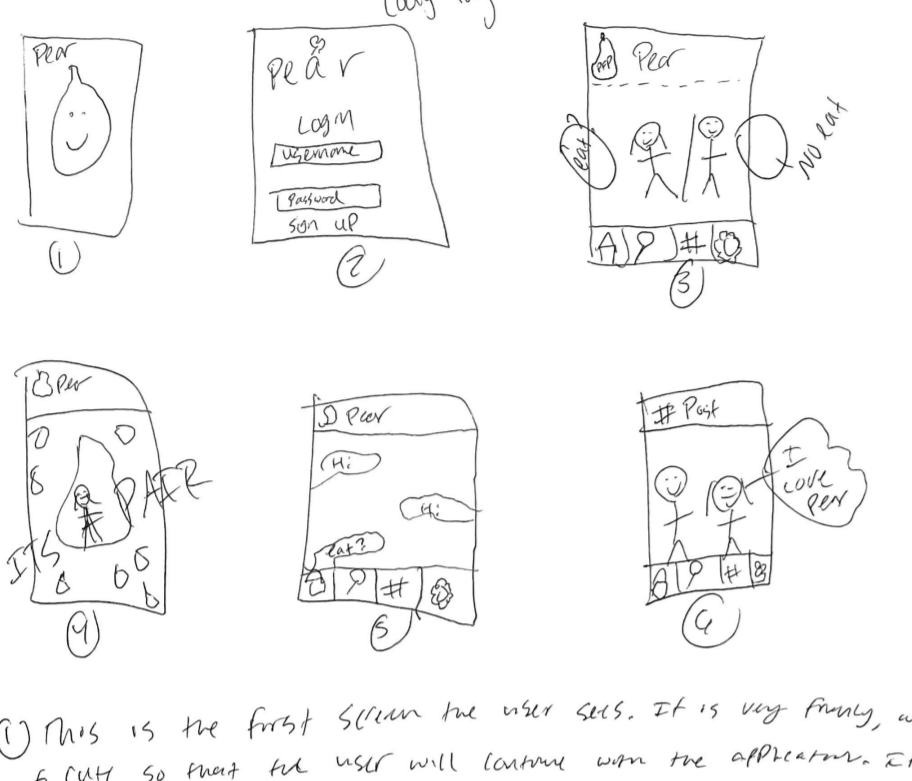 Pear
1
pear
Login
username
Password
sign up
2
PFP Pear
eat
No eat
#
3
Pear
ITS PAIR
4
Pear
Hi
Hi
eat?
#
5
# Post
I
Love
pear
#
6
① This is the first screen the user sees. It is very friendly,
so that the user will continue with the application.